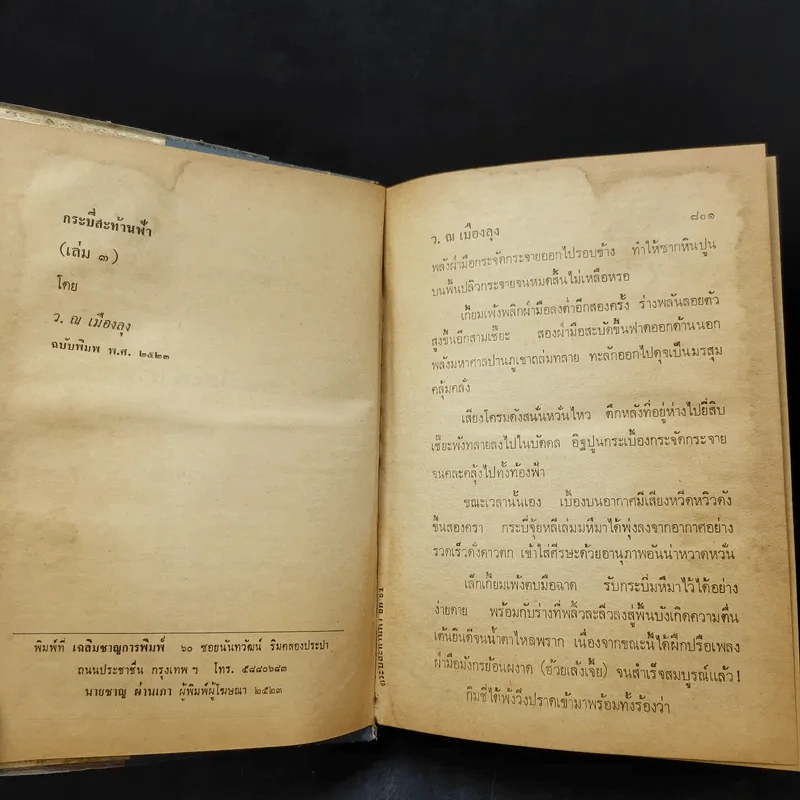 กระบี่สะท้านฟ้า
(เล่ม ๓)
โดย
ว. ณ เมืองลุง
ฉบับพิมพ์ พ.ศ. ๒๕๒๓
พิมพ์ที่ เฉลิมชาญการพิมพ์ ๖๐ ซอยนันทวัฒน์ ริมคลองประปา
ถนนประชาชื่น กรุงเทพฯ โทร. ๕๘๘๐๖๘๓
นายชาญ ผ่านเภา ผู้พิมพ์ผู้โฆษณา ๒๕๒๓
๘๐๑
ว. ณ เมืองลุง
พลังฝ่ามือกระจัดกระจายออกไปรอบข้าง ทำให้ซากหินปูน
บนพื้นปลิวกระจายจนหมดสิ้นไม่เหลือหรอ
เกี้ยมเพ้งพลิกฝ่ามือลงต่ำอีกสองครั้ง ร่างพลันลอยตัว
สูงขึ้นอีกสามเชี๊ยะ สองฝ่ามือสะบัดขึ้นฟาดออกด้านนอก
พลังมหาศาลปานภูเขาถล่มทลาย ทะลักออกไปดุจเป็นมรสุม
คลุ้มคลั่ง
เสียงโครมดังสนั่นหวั่นไหว ตึกหลังที่อยู่ห่างไปยี่สิบ
เชี๊ยะพังทลายลงไปในบัดดล อิฐปูนกระเบื้องกระจัดกระจาย
จนคละคลุ้งไปทั้งท้องฟ้า
ขณะเวลานั้นเอง เบื้องบนอากาศมีเสียงหวีดหวิวดัง
ขึ้นสองครา กระบี่จุ้ยหลีเล่มมหึมาได้พุ่งลงจากอากาศอย่าง
รวดเร็วดั่งดาวตก เข้าใส่ศีรษะด้วยอานุภาพอันน่าหวาดหวั่น
เล็กเกี้ยมเพ้งตบมือฉาด รับกระบี่มหึมาไว้ได้อย่าง
ง่ายดาย พร้อมกับร่างที่พลิ้วละลิ่วลงสู่พื้นบังเกิดความตื่น
เต้นยินดีจนน้ำตาไหลพราก เนื่องจากขณะนี้ได้ฝึกปรือเพลง
ฝ่ามือมังกรย้อนผงาด (อ้วยเล้งเจี้ย) จนสำเร็จสมบูรณ์แล้ว!
กิมชี่ไต้พั้งวิ่งปราดเข้ามาพร้อมทั้งร้องว่า